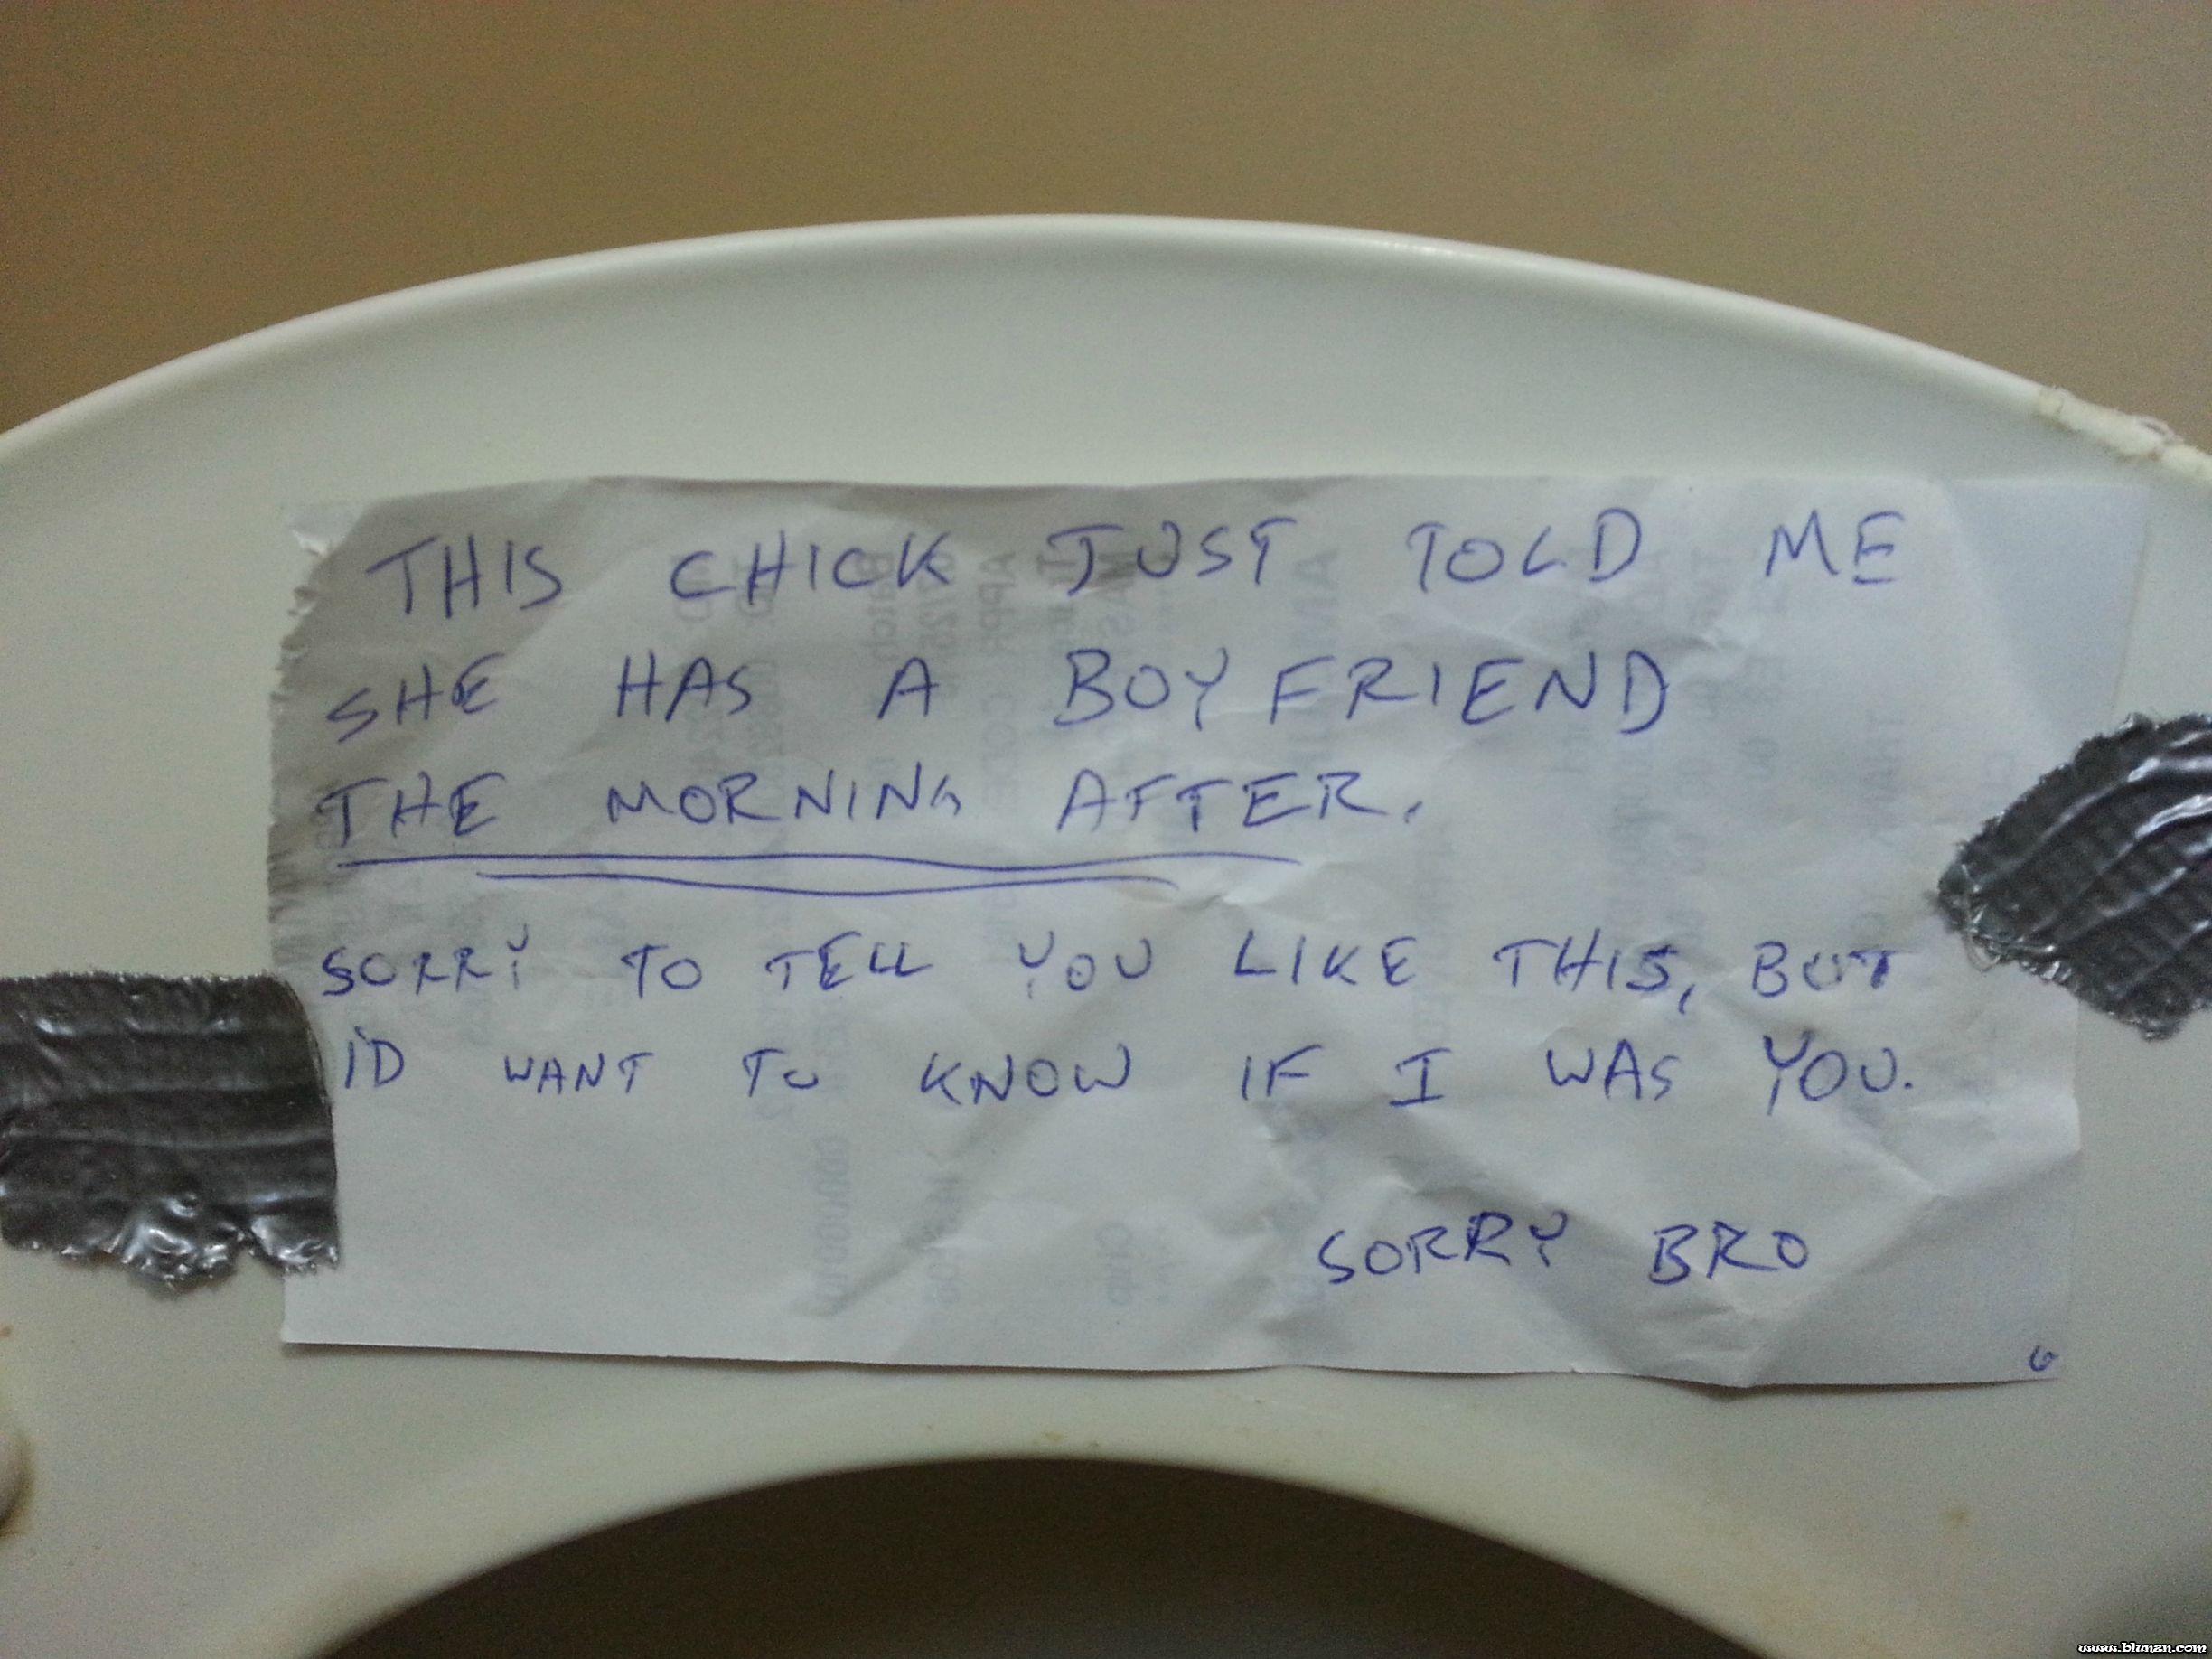 THIS CHICK JUST TOLD ME
SHE HAS A BOYFRIEND
THE MORNING AFTER.
SORRY TO TELL YOU LIKE THIS, BUT
I'D WANT TO KNOW IF I WAS YOU.
SORRY BRO
www.blunzn.com